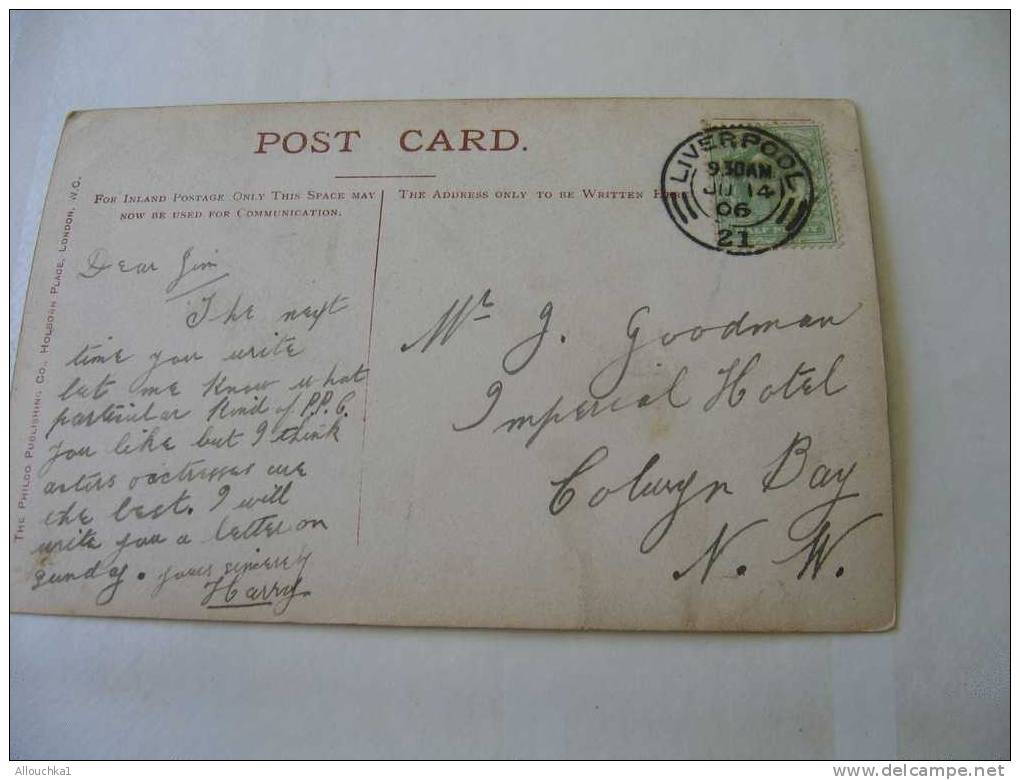 POST CARD.
FOR INLAND POSTAGE ONLY THIS SPACE MAY
NOW BE USED FOR COMMUNICATION.
THE ADDRESS ONLY TO BE WRITTEN HERE
THE PHILCO PUBLISHING CO., HOLBORN PLACE, LONDON, W.C.
LIVERPOOL
9.30AM
JU 14
06
21
HALFPENNY
Dear Jim
The next
time you write
let me know what
particular kind of P.P.C.
you like but I think
acters actresses are
the best. I will
write you a letter on
Sunday. yours sincerely
Harry.
Mr J. Goodman
Imperial Hotel
Colwyn Bay
N. W.
Allouchka1
delcampe.net